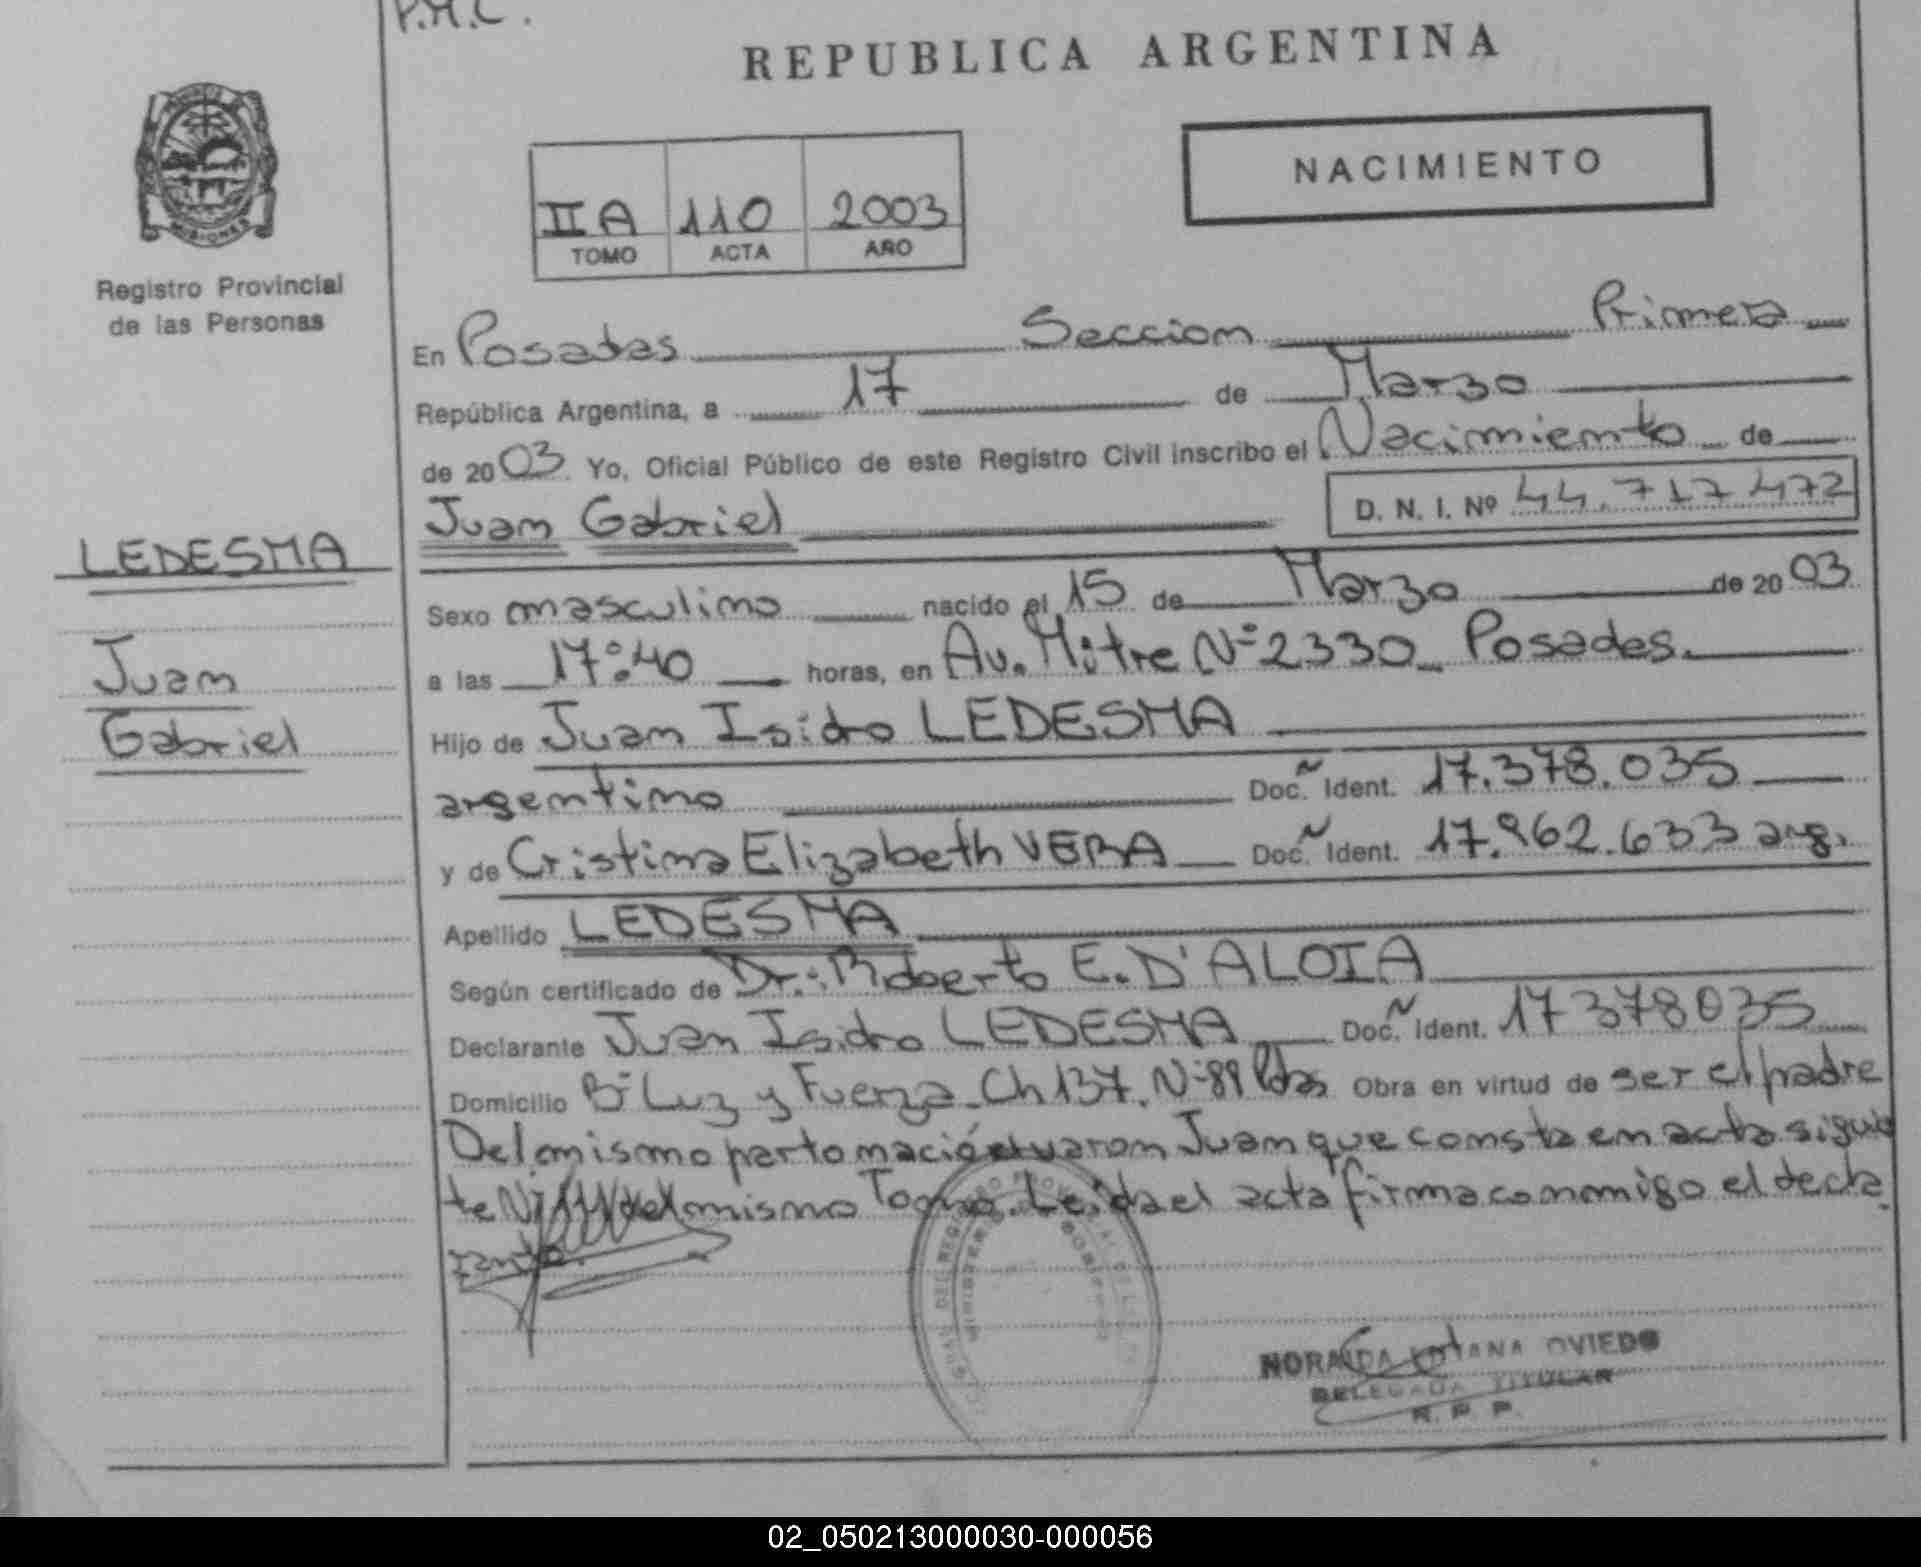 P.M.C.
REPUBLICA ARGENTINA
NACIMIENTO
II A 110 2003
TOMO ACTA AÑO
MISIONES
Registro Provincial
de las Personas
En Posadas Seccion Primera
República Argentina, a 17 de Marzo
de 2003. Yo, Oficial Público de este Registro Civil inscribo el Nacimiento de
Juan Gabriel D. N. I. Nº 44.717.472
LEDESMA
Juan
Gabriel
Sexo masculino nacido el 15 de Marzo de 2003
a las 17:40 horas, en Av. Mitre Nº 2330 Posadas.
Hijo de Juan Isidro LEDESMA
argentino Doc. Ident. 17.378.035
y de Cristina Elizabeth VERA Doc. Ident. 17.962.633 arg.
Apellido LEDESMA
Según certificado de Dr.: Roberto E. D'ALOIA
Declarante Juan Isidro LEDESMA Doc. Ident. 17378035
Domicilio Bº Luz y Fuerza Ch 137. Nº 89 Pdas Obra en virtud de ser el padre
Del mismo parto nació el varon Juan que consta en acta siguien
te del mismo Tomo. Leida el acta firma conmigo el decla
rante.
OVIEDO
DELEGADA TITULAR
R. P. P.
02_050213000030-000056